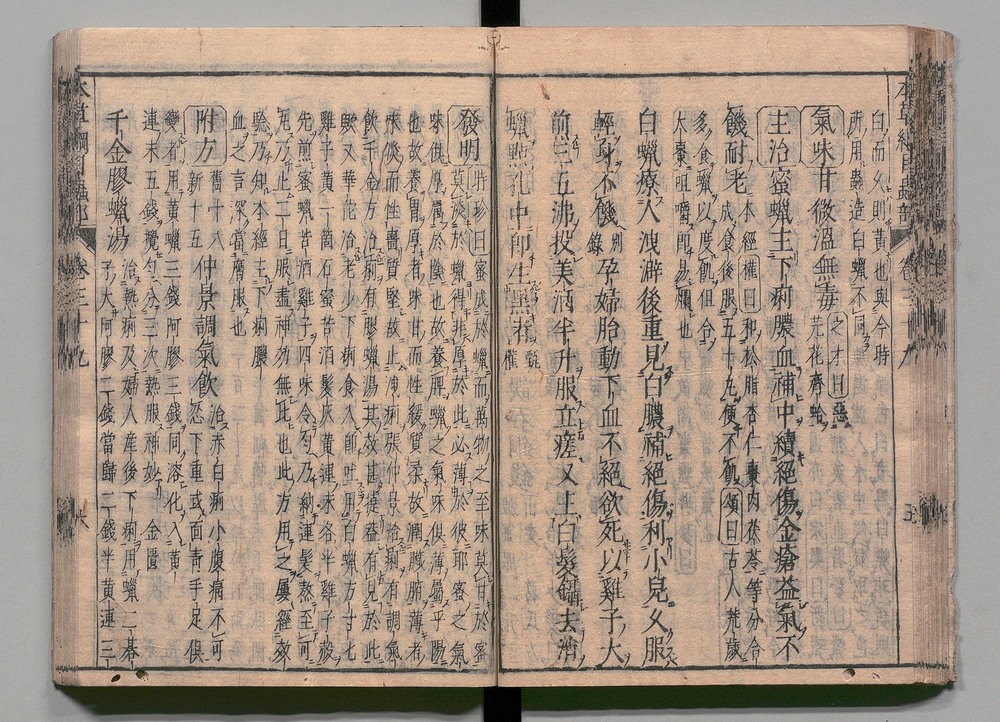 本草綱目蟲部 卷三十九 五
白而久則黃也與今時
所用蟲造白蠟不同
氣味甘微溫無毒之才曰惡
芫花齊蛤
主治蜜蠟主下痢膿血補中續絕傷金瘡益氣不
饑耐老本經權曰和松脂杏仁棗肉茯苓等分合
成食後服五十丸便不飢頌曰古人荒歲
多食蠟以度飢但合
大棗咀嚼即易爛也
白蠟療人洩澼後重見白膿補絕傷利小兒久服
輕身不饑別錄孕婦胎動下血不絕欲死以雞子大
煎三五沸投美酒半升服立瘥又主白髮鑷去消
蠟點孔中即生黑者甄權
發明時珍曰蜜成於蠟而萬物之至味莫甘於蜜
莫淡於蠟得非厚於此必薄於彼耶蜜之氣
味俱厚屬於陰也故養脾蠟之氣味俱薄屬乎陽
也故養胃厚者味甘而性緩質柔故潤臟腑薄者
味淡而性嗇質堅故止洩痢張仲景治痢有調氣
飲千金方治痢有膠蠟湯其效甚捷蓋有見於此
歟又華佗治老少下痢食入即吐用白蠟方寸匕
雞子黃一箇石蜜苦酒髮灰黃連末各半雞子殼
先煎蜜蠟苦酒雞子四味令勻乃納連髮熬至可
丸乃止二日服盡神効無比也此方用之屢經效
驗乃知本經主下痢膿
血之言深當膺服也
附方舊十八新十五仲景調氣飲治赤白痢小腹痛不可
忍下重或面青手足俱
變者用黃蠟三錢阿膠三錢同溶化入黃
連末五錢攪勻分三次熱服神妙金匱
千金膠蠟湯治熱痢及婦人產後下痢用蠟二棊
子大阿膠二錢當歸二錢半黃連三
本草綱目蟲部 卷三十九 六